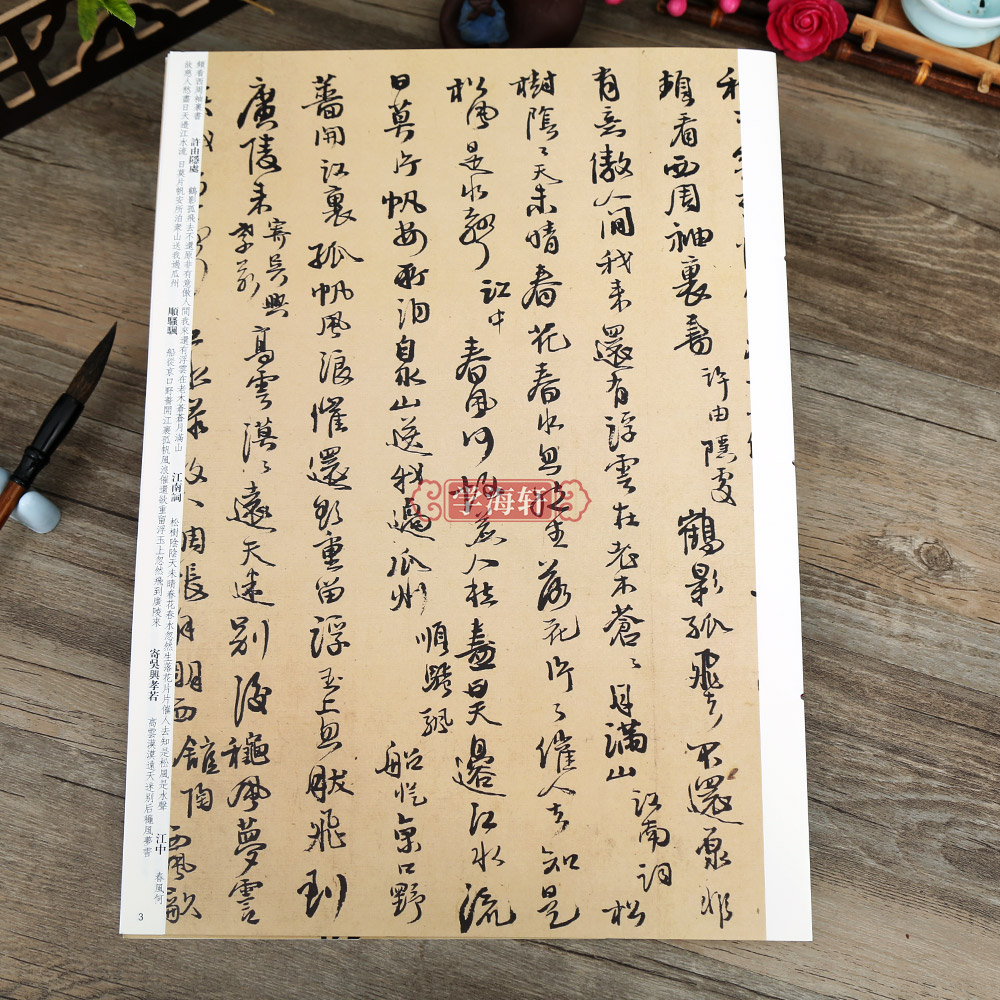 頻看西周袖裏書 許由隱處 鶴影孤飛去不還原非
有意傲人間我來還有浮雲在老木蒼〻月滿山 江南詞 松
樹陰〻天未晴春花春水忽然生落花片〻催人去知是
松風是水聲 江中 春風何故惹人愁盡日天邊江水流
日莫片帆安所泊衆山送我過瓜州 順騷颿 船從京口野
薔開江裏孤帆風浪催還欲重留浮玉上忽然飛到
廣陵來 寄吳興孝若 高雲漠〻遠天迷別後穐風夢雪
頻看西周袖裏書 許由隱處 鶴影孤飛去不還原非有意傲人間我來還有浮雲在老木蒼蒼月滿山 江南詞 松樹陰陰天未晴春花春水忽然生落花片片催人去知是松風是水聲 江中 春風何
故惹人愁盡日天邊江水流 日莫片帆安所泊衆山送我過瓜州 順騷颿 船從京口野薔開江裏孤帆風浪催還欲重留浮玉上忽然飛到廣陵來 寄吳興孝若 高雲漠漠遠天迷別后穐風夢雪
3
学海轩